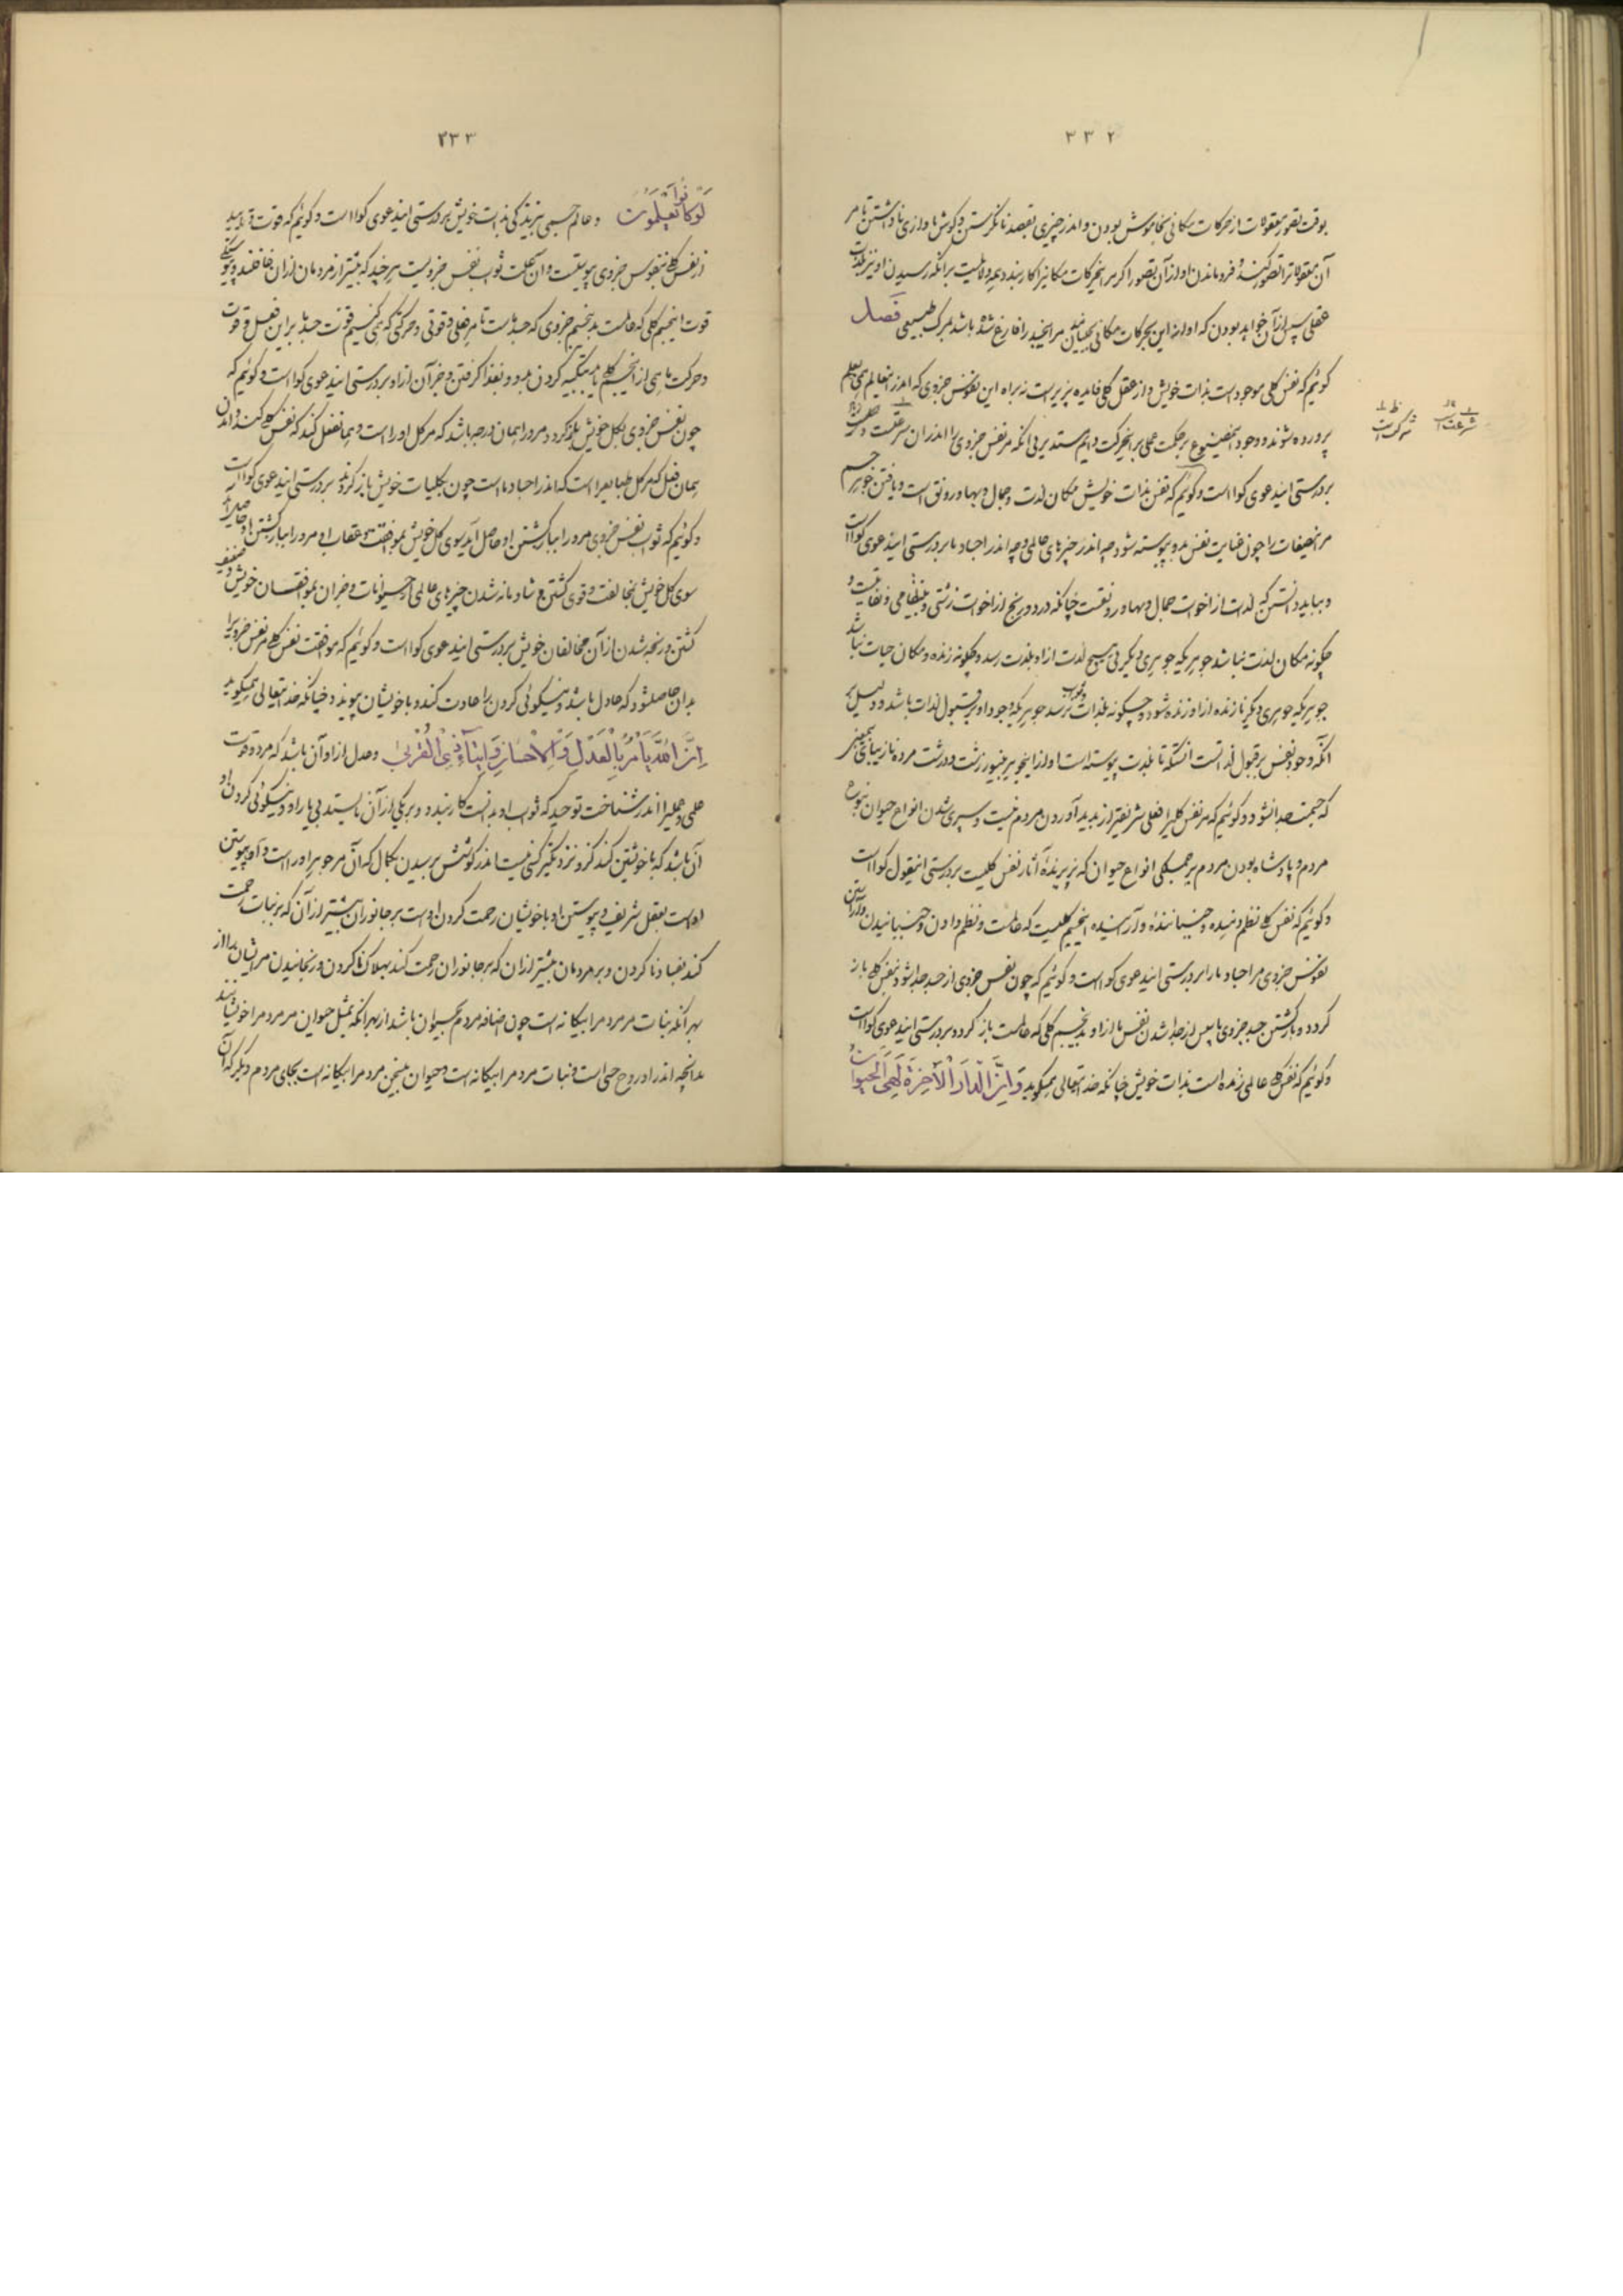 ۳۳۲
بوقت تصور معقولات از حرکات مکانی بخاموش بودن و اندر چیزی بقصد نانگرستن و گوش باوازی ناداشتن تا مر
آن معقولاترا تصور کننده فرو ماندن او از آن تصور اگر مر این حرکات مکانیرا کار بندد همه دلالت است برآنکه رسیدن او نیز بلذت
عقلی سپس از آن خواهد بودن که او از این حرکات مکانی مر این جسد را فارغ شده باشد بمرگ طبیعی فصل
گوئیم که نفس کلی موجود است بذات خویش و از عقل کلی فایده پذیر است زیرا که این نفوس جزوی که اندر این عالم همی بعلم
پرورده شوند و وجود این مصنوع بر حکمت عملی بر این حرکت دایم مستدیر بی آنکه مر نفس جزوی را اندر آن شرکت است
بر درستی این دعوی گواست و گوئیم که نفس بذات خویش مکان لذت و جمال و بها و رونق است و یافتن جوهر جسم
مر این صفات را چون عنایت نفس بدو پیوسته شود چه اندر چیزهای عالمی و چه اندر اجساد ما بر درستی این دعوی گواست
و بباید دانستن که لذت از اخوات جمال و بها و رونقست چنانکه درد و رنج از اخوات زشتی و بی نظامی
چگونه مکان لذت نباشد جوهریکه جوهری دیگر بی هیچ لذت از او بلذت رسد و چگونه زنده و مکان حیات نباشد
جوهریکه جوهری دیگر نازنده از او زنده شود و چگونه بلذات نرسد جوهریکه وجود او بر قبول لذات باشد و دلیل بر
آنکه وجود نفس بر قبول لذاتست آنستکه تا بلذت پیوسته است او از این جوهر بی نور زشت و درشت مرده نازیبای بی معنی
که جسمست جدا نشود و گوئیم که مر نفس کلیرا فعلی شریفتر از پدید آوردن مردم نیست و سپری شدن انواع حیوان بنوع
مردم و پادشاه بودن مردم بر همگی انواع حیوان که پذیرنده آثار نفس کلیست بر درستی این قول گواست
و گوئیم که نفس کلی نظم دهنده و جنباننده و آراینده این جسم کلیست که عالمست و نظم دادن و جنبانیدن و آراستن
نفوس جزوی مر اجساد ما را بر درستی این دعوی گواست و گوئیم که چون نفس جزوی از جسد جدا شود بنفس کلی باز
گردد و بازگشتن جسد جزوی ما پس از جدا شدن نفس ما از او بدین جسم کلی که عالمست باز گردد بر درستی این دعوی گواست
و گوئیم که نفس کلی عالمی زنده است بذات خویش چنانکه خدایتعالی میگوید وَ اِنَّ الدّارَ الْآخِرَةَ لَهِیَ الْحَیَوانُ
۳۳۳
لَوْ کانُوا یَعْلَمُونَ و عالم حسی نیز زندگی بذات خویش بر درستی این دعوی گواست و گوئیم که قوت
از نفس کلی بنفوس جزوی پیوسته است و آن علت ثواب نفس جزویست هر چند که بیشتر از مردمان از آن غافلند
قوت این جسم کلی که عالمست بدین جسم جزوی که جسد ماست تا هر فعلی و قوتی و حرکتی که همی کنیم بقوت جسد ما بر این فعل و قوت
و حرکت ما همی از این جسم کلی بتکیه کردن بدو و بغذا گرفتن و جز آن از او بر درستی این دعوی گواست و گوئیم که
چون نفس جزوی بکل خویش بازگردد مرو را همان درجه باشد که مر کل او را است و همان فعل کند که نفس کلی کند
همان فعل که مر کل طبایعرا است که اندر اجساد ما است چون بکلیات خویش باز گردند بر درستی این دعوی گواست
و گوئیم که ثواب نفس جزوی مرو را ببازگشتن او حاصل آید سوی کل خویش بموافقت و عقاب او مرو را ببازگشتن او حاصل آید
سوی کل خویش بمخالفت و قوی گشتن و شادمانه شدن چیزهای عالمی از حیوانات و جز آن بموافقان خویش و ضعیف
گشتن و رنجه شدن از آن مخالفان خویش بر درستی این دعوی گواست و گوئیم که موافقت نفس کلی مر نفس جزوی را
بدان حاصل شود که عادل باشد و نیکوئی کردن را عادت کند و با خویشان پیوندد چنانکه خدایتعالی میگوید
اِنَّ اللهَ یَأْمُرُ بِالْعَدْلِ وَ الْاِحْسانِ وَ ایتاءِ ذِی الْقُرْبی و عدل از او آن باشد که مر دو قوت
علمی و عملیرا اندر شناخت توحید که ثواب او بدانست کار بندد و بر یکی از آن نایستد بی یار او و نیکوئی کردن او
آن باشد که با خویشتن کند که و نزدیکتر کسی نیست اندر کوشش برسیدن بکمال که آن مر جوهر او را است
او است بعقل شریف و پیوستن او با خویشان رحمت کردن او است بر جانوران بیشتر از آن که بر نبات رحمت
کند بفساد نا کردن و بر مردمان بیشتر از آن که بر جانوران رحمت کند بهلاک نا کردن و رنجانیدن مر ایشان را از
بهر آنکه نبات مر مردم را بیگانه است چون اضافه مردم بحیوان باشد از بهر آنکه بمثل حیوان مر مردم را خویشانند
بدانچه اندر او روح حسی است و نبات مردم را بیگانه است و حیوان بی سخن مردم را بیگانه است بجای مردم دیگر که آن